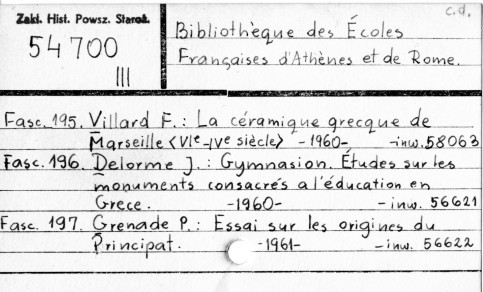 Zakł. Hist. Powsz. Staroż.
c.d.
54 700
III
Bibliothèque des Écoles
Françaises d'Athènes et de Rome.
Fasc. 195. Villard F.: La céramique grecque de
Marseille <VIe-IVe siècle> -1960- -inw. 58063
Fasc. 196. Delorme J.: Gymnasion. Études sur les
monuments consacrés a l'éducation en
Grece. -1960- -inw. 56621
Fasc. 197. Grenade P.: Essai sur les origines du
Principat. -1961- -inw. 56622